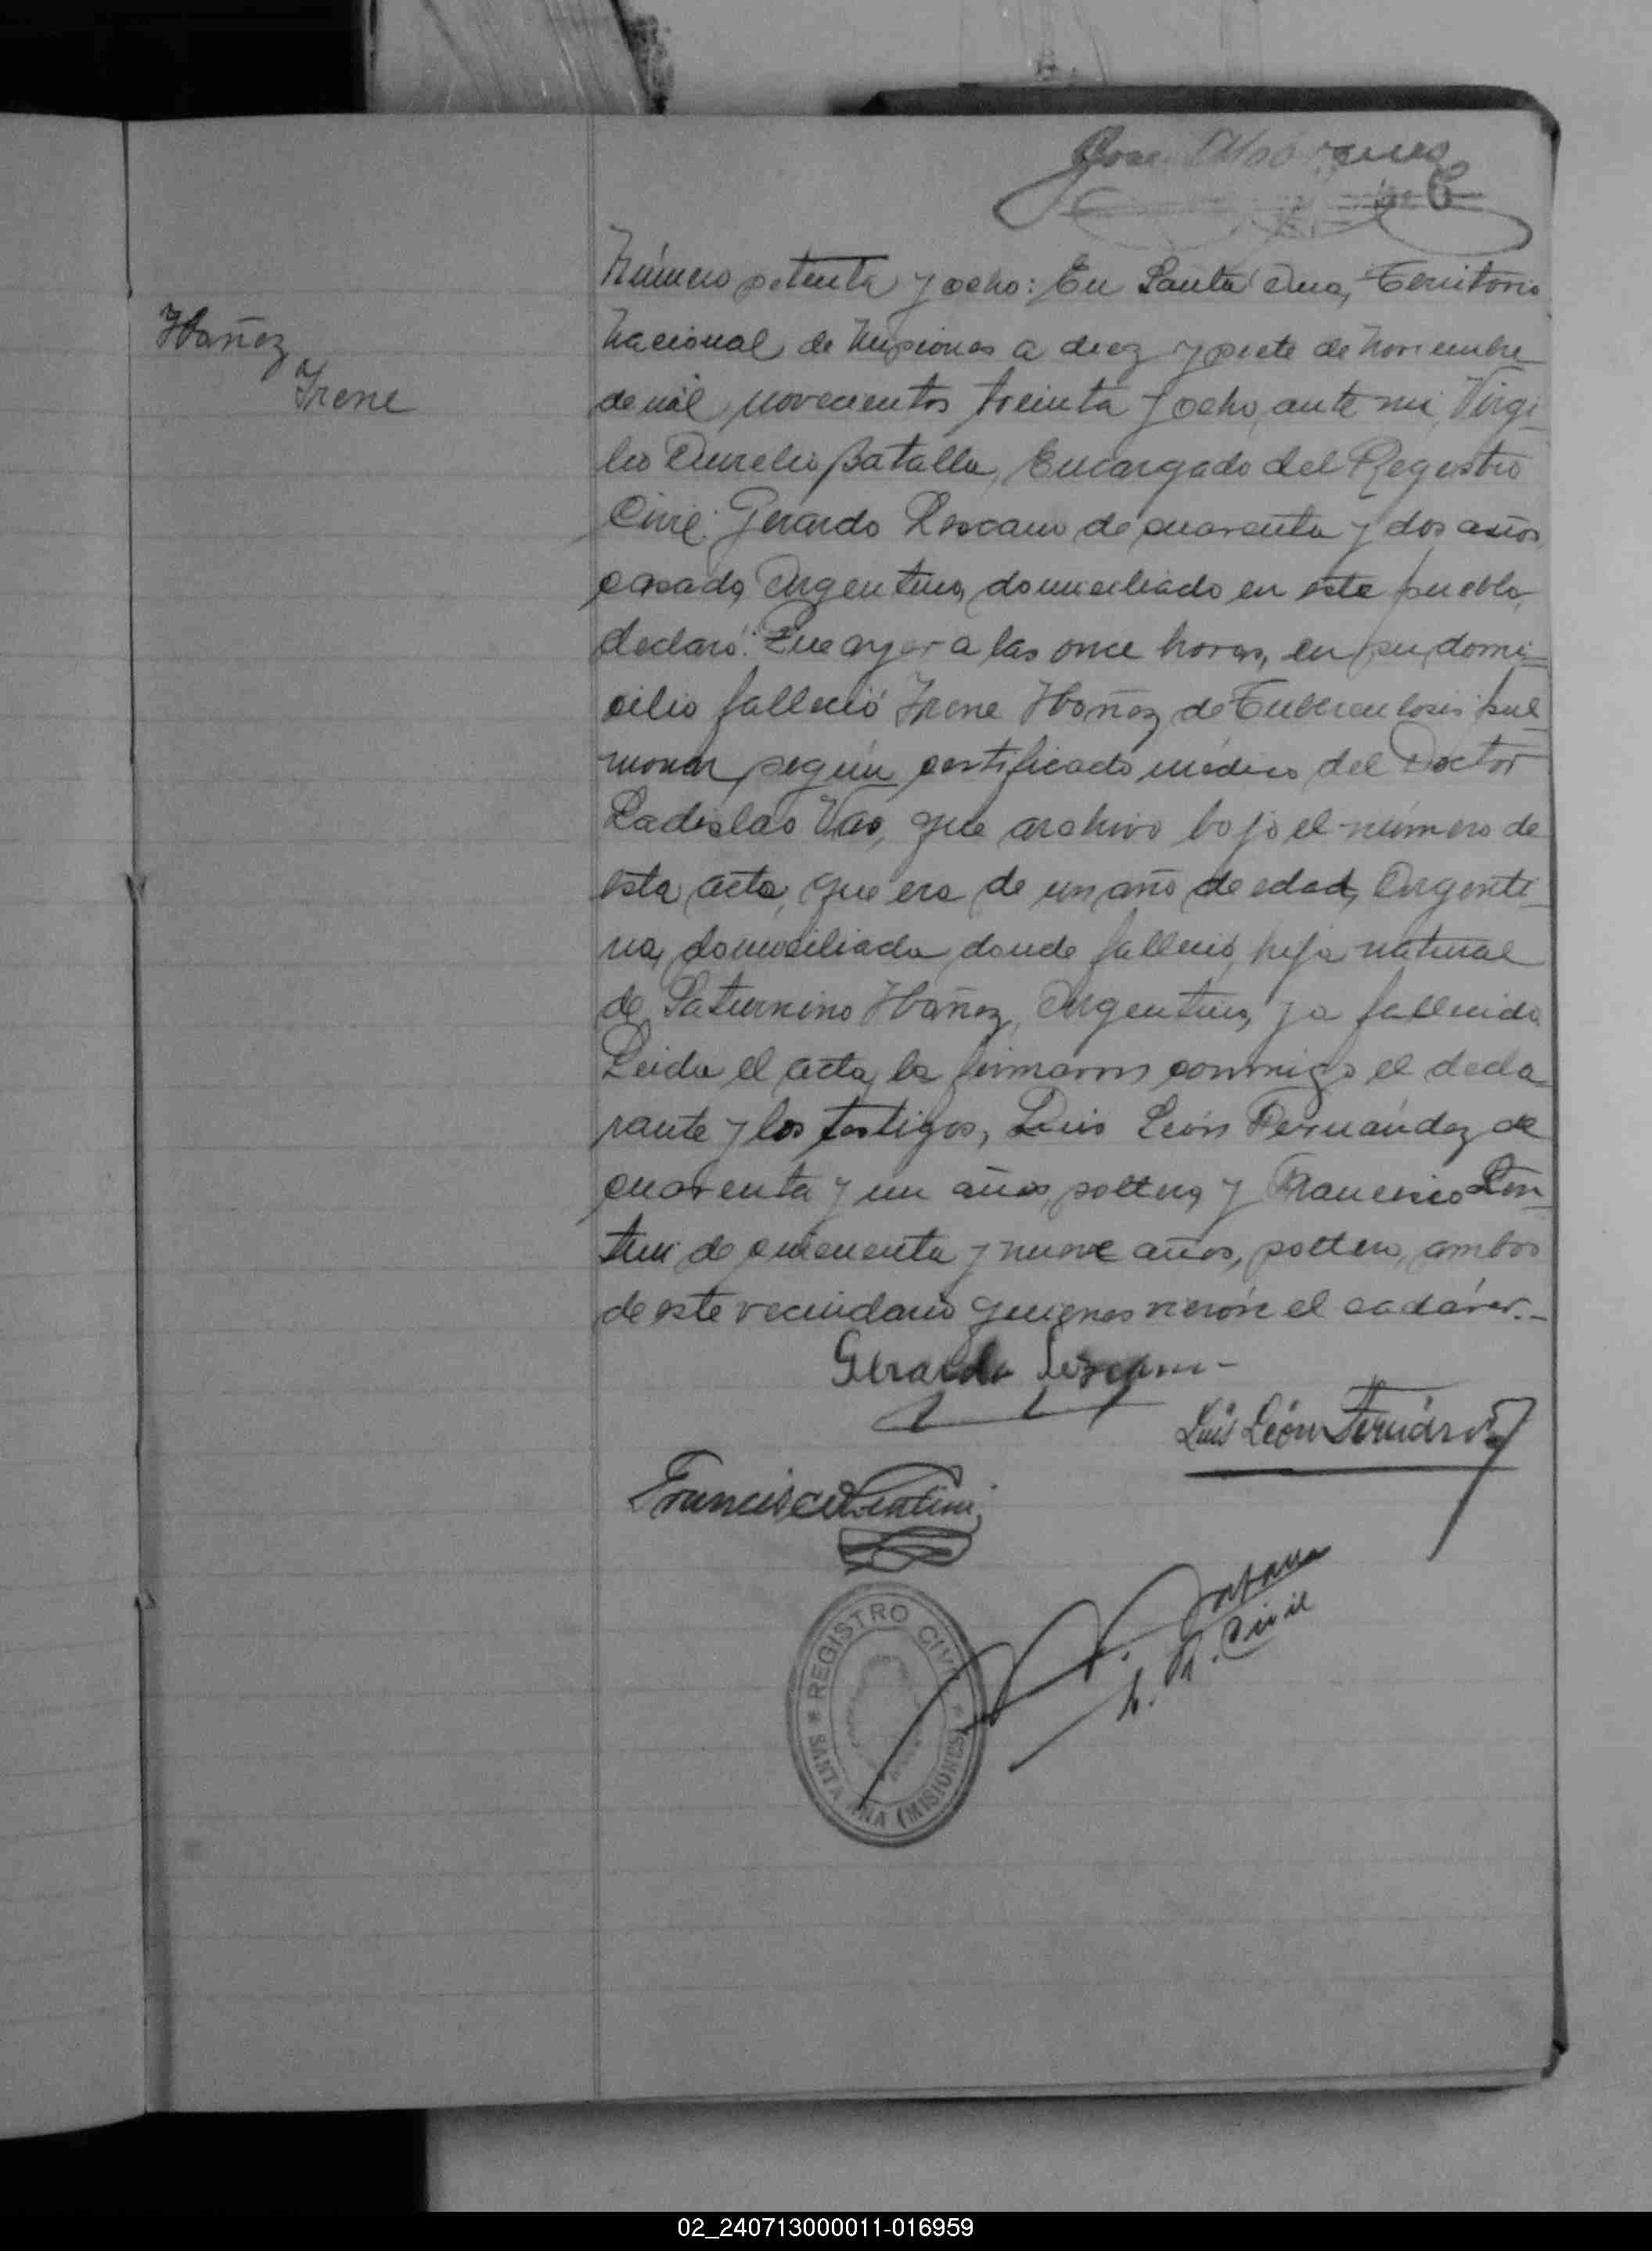 Jose
Ibañez
Irene
Número setenta y ocho: En Santa Ana, Territorio
Nacional de Misiones a diez y siete de Noviembre
de mil novecientos treinta y ocho, ante mi, Virgi-
lio Aurelio Batalla, Encargado del Registro
Civil: Gerardo Lescano de cuarenta y dos años,
casado, Argentino, domiciliado en este pueblo,
declaró: Que ayer a las once horas, en su domi-
cilio falleció Irene Ibañez de Tuberculosis pul-
monar según certificado médico del Doctor
Ladislao Vas, que archivo bajo el número de
esta acta, que era de un año de edad, Argenti-
na, domiciliada donde falleció, hija natural
de Saturnino Ibañez, Argentino, ya fallecido
Leida el acta, la firmaron conmigo el decla-
rante y los testigos, Luis León Fernández de
cuarenta y un años, soltero, y Francisco Len-
tini de cincuenta y nueve años, soltero, ambos
de este vecindario quienes vierón el cadáver.-
Gerardo Lescano-
Luis León Fernández
Francisco Lentini
V. Batalla
E. R. Civil
REGISTRO CIVIL
SANTA ANA (MISIONES)
02_240713000011-016959